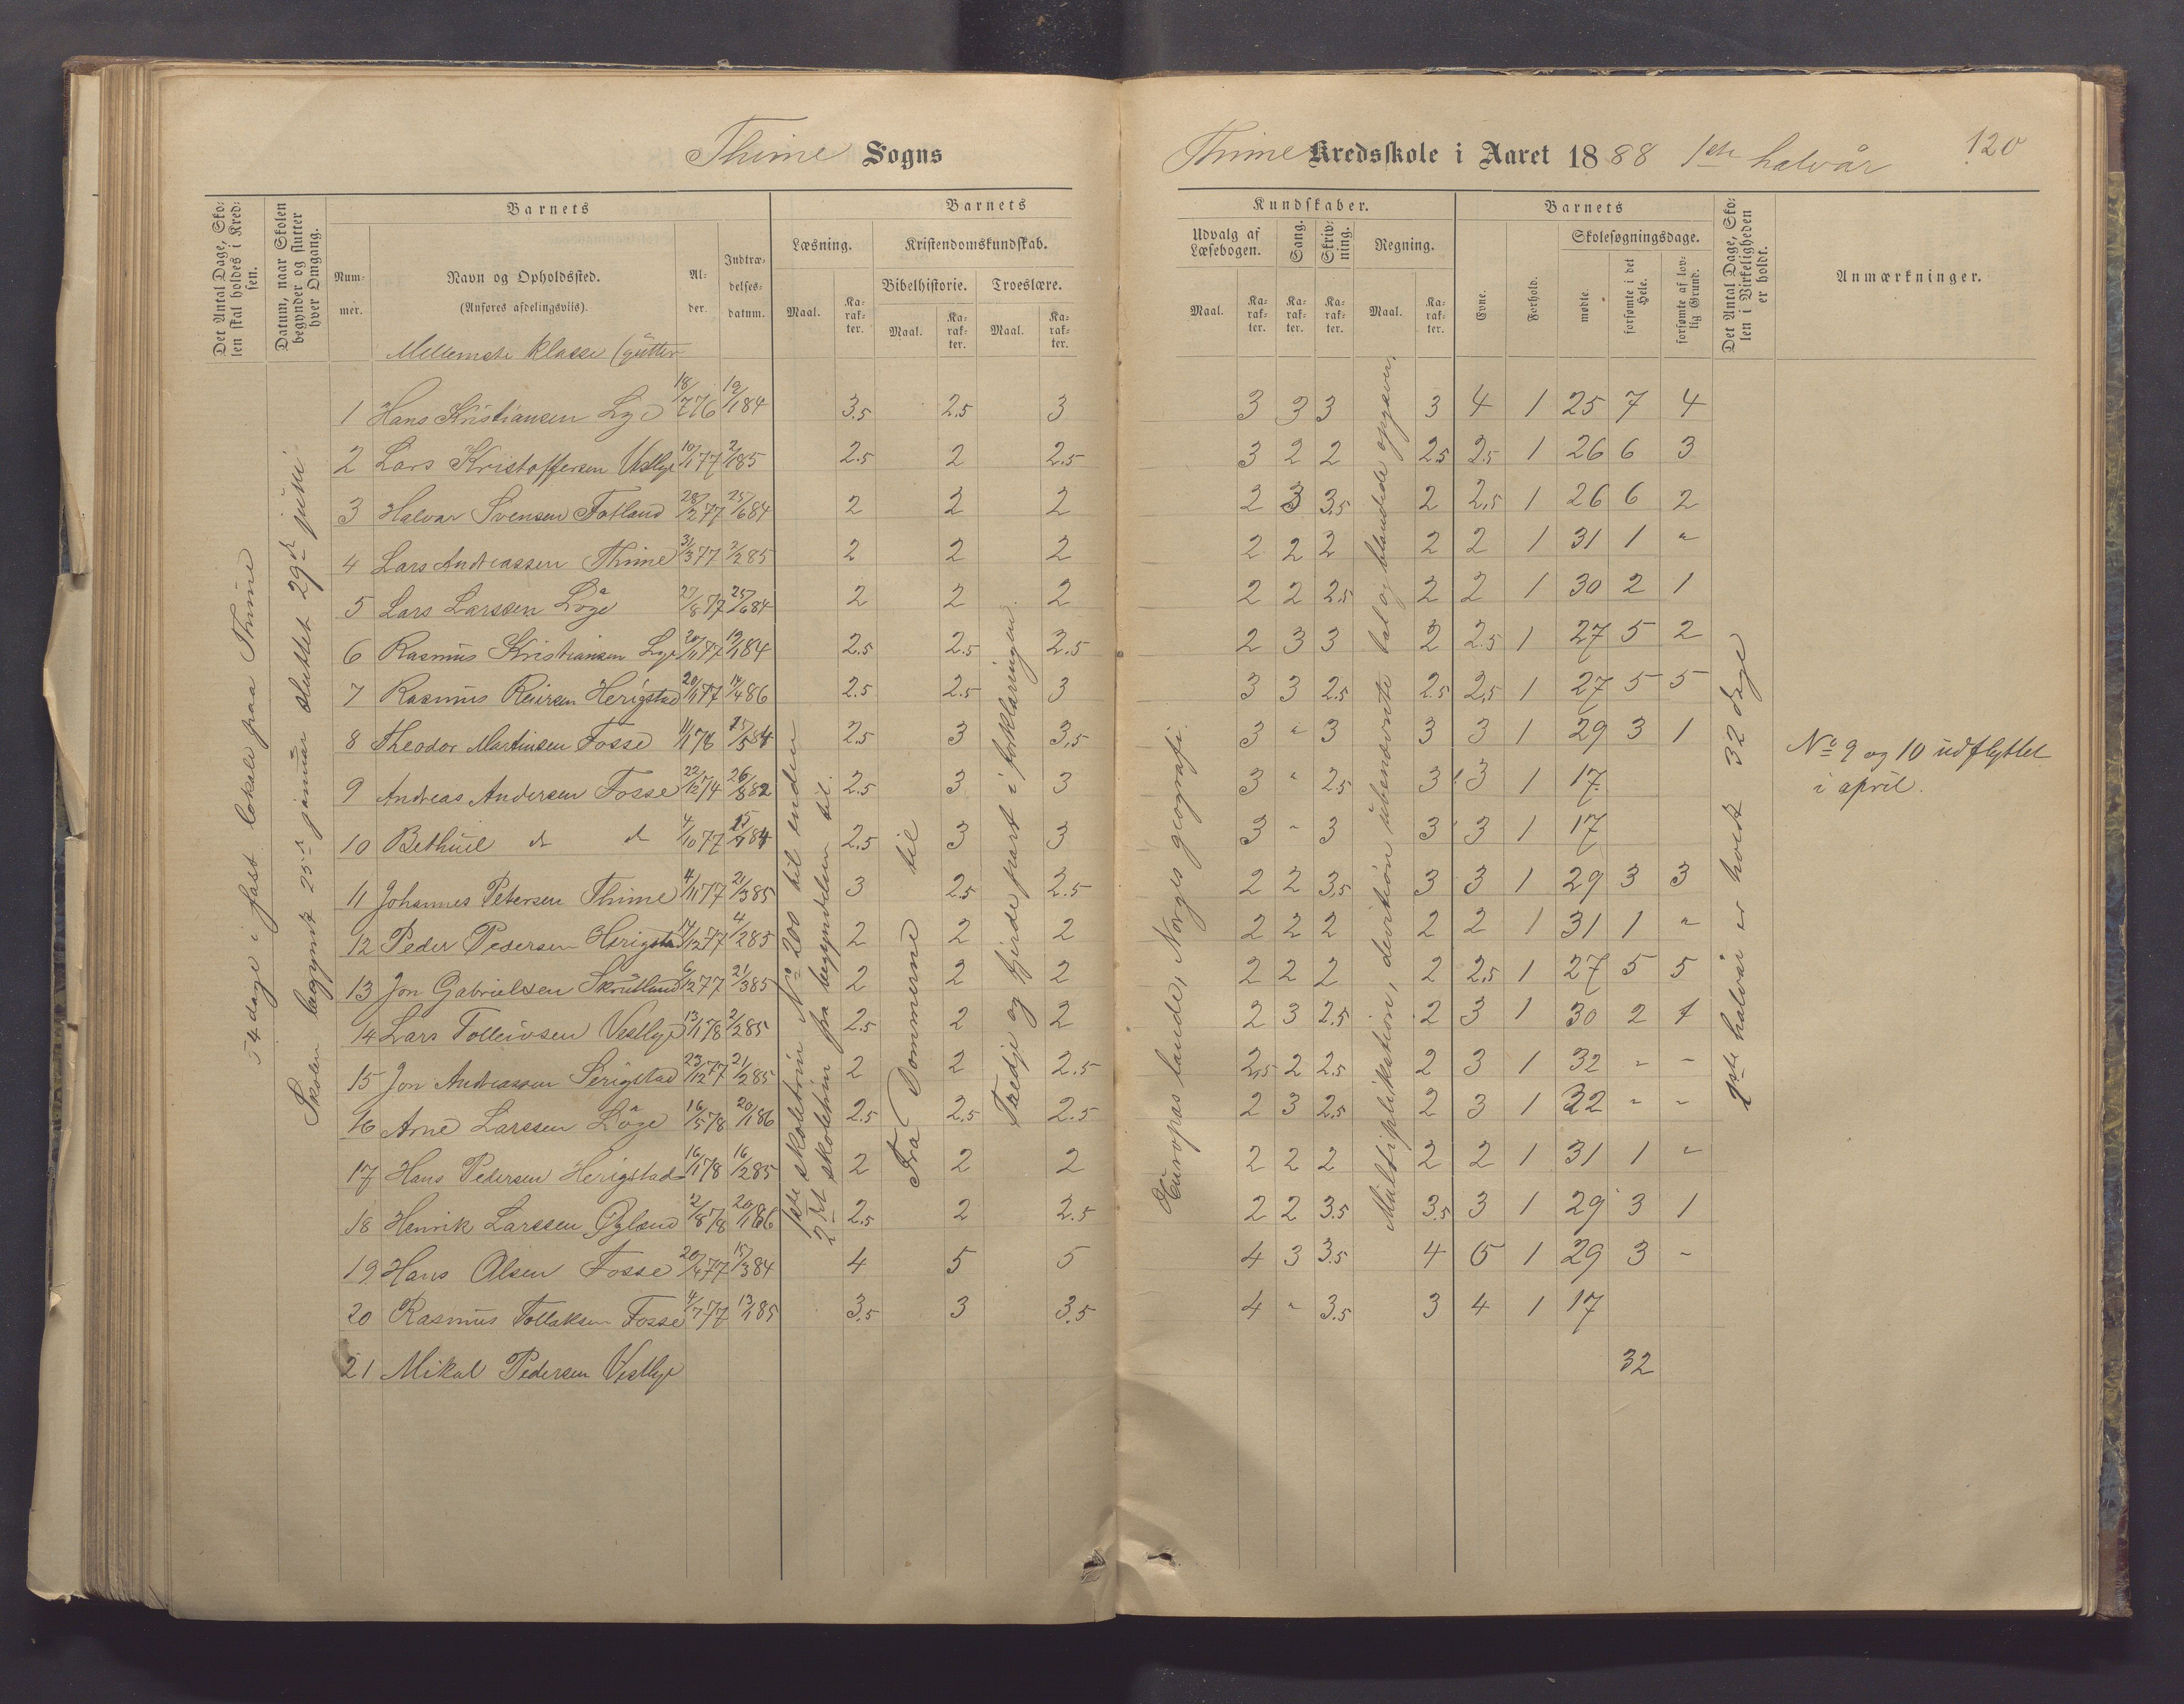 Thime Sogns
Thime Kredsskole i Aaret 1888 1ste halvår
120
Det Antal Dage, Skolen skal holdes i Kredsen.
Datum, naar Skolen begynder og slutter hver Omgang.
Barnets
Nummer.
Navn og Opholdssted.
(Anføres afdelingsviis).
Alder.
Indtrædelsesdatum.
Barnets
Læsning.
Kristendomskundskab.
Bibelhistorie.
Troeslære.
Maal.
Karakter.
Maal.
Karakter.
Maal.
Karakter.
Kundskaber.
Udvalg af Læsebogen.
Sang.
Skrivning.
Regning.
Maal.
Karakter.
Karakter.
Karakter.
Maal.
Karakter.
Barnets
Evne.
Forhold.
Skolesøgningsdage.
mødte.
forsømte i det Hele.
forsømte af lovlig Grund.
Det Antal Dage, Skolen i Virkeligheden er holdt.
Anmærkninger.
54 dage i fast lokale paa Thime
Skolen begyndt 25de januar sluttet 29de juni
Mellemste klasse (gutter
1ste skoletrin No 200 til enden
2det skoletrin fra begyndelsen til
Fra Dommerne til
Tredje og fjerde part i forklaringen.
Europas lande, Norges geografi.
Multiplikation, division ubenævnte tal og blandede opgaver.
1ste halvår er holdt 32 dage
1 Hans Kristiansen Lye 18/7 76 19/1 84 3.5 2.5 3 3 3 3 3 4 1 25 7 4
2 Lars Kristoffersen Vestlye 10/1 77 2/1 85 2.5 2 2.5 3 2 2 2.5 2.5 1 26 6 3
3 Halvar Svensen Fotland 28/2 77 25/6 84 2 2 2 2 3 3.5 2 2.5 1 26 6 2
4 Lars Andreassen Thime 31/3 77 2/2 85 2 2 2 2 2 2 2 2 1 31 1 "
5 Lars Larssen Löge 27/8 77 25/6 84 2 2 2 2 2 2.5 2 2 1 30 2 1
6 Rasmus Kristiansen Lye 20/11 77 19/1 84 2.5 2.5 2.5 2 3 3 2 2.5 1 27 5 2
7 Rasmus Reiersen Herigstad 20/11 77 14/4 86 2.5 2.5 3 3 3 2.5 2.5 2.5 1 27 5 5
8 Theodor Martinsen Fosse 11/1 78 15/5 84 2.5 3 3.5 3 " 3 3 3 1 29 3 1
9 Andreas Andersen Fosse 22/12 74 26/8 82 2.5 3 3 3 " 2.5 3 3 1 17
10 Bethuel d d 4/10 77 84 2.5 3 3 3 " 3 3 3 1 17
11 Johannes Petersen Thime 4/11 77 21/3 85 3 2.5 2.5 2 2 3.5 3 3 1 29 3 3
12 Peder Pedersen Herigstad 14/12 77 4/2 85 2 2 2 2 2 2 2 2 1 31 1 "
13 Jon Gabrielsen Skrutland 6/12 77 21/3 85 2 2 2 2 2 2 2 2.5 1 27 5 5
14 Lars Tolleivsen Vestlye 13/1 78 2/2 85 2.5 2 2 2 3 2.5 2 3 1 30 2 1
15 Jon Andreassen Serigstad 23/12 77 21/2 85 2 2 2.5 2.5 2 2.5 2 3 1 32 " "
16 Arne Larssen Löge 16/5 78 20/1 86 2.5 2.5 2.5 2 3 2.5 2 3 1 32 " "
17 Hans Pedersen Herigstad 16/1 78 16/2 85 2 2 2 2 2 2 2 2 1 31 1 "
18 Henrik Larssen Øgland 2/8 78 20/1 86 2.5 2 2.5 2 2 3.5 3.5 3 1 29 3 1
19 Hans Olsen Fosse 20/4 77 15/3 84 4 5 5 4 3 3.5 4 5 1 29 3 "
20 Rasmus Tollaksen Fosse 4/7 77 13/1 85 3.5 3 3.5 4 " 3.5 3 4 1 17
21 Mikal Pedersen Vestlye 32
No 9 og 10 udflyttet
i april.